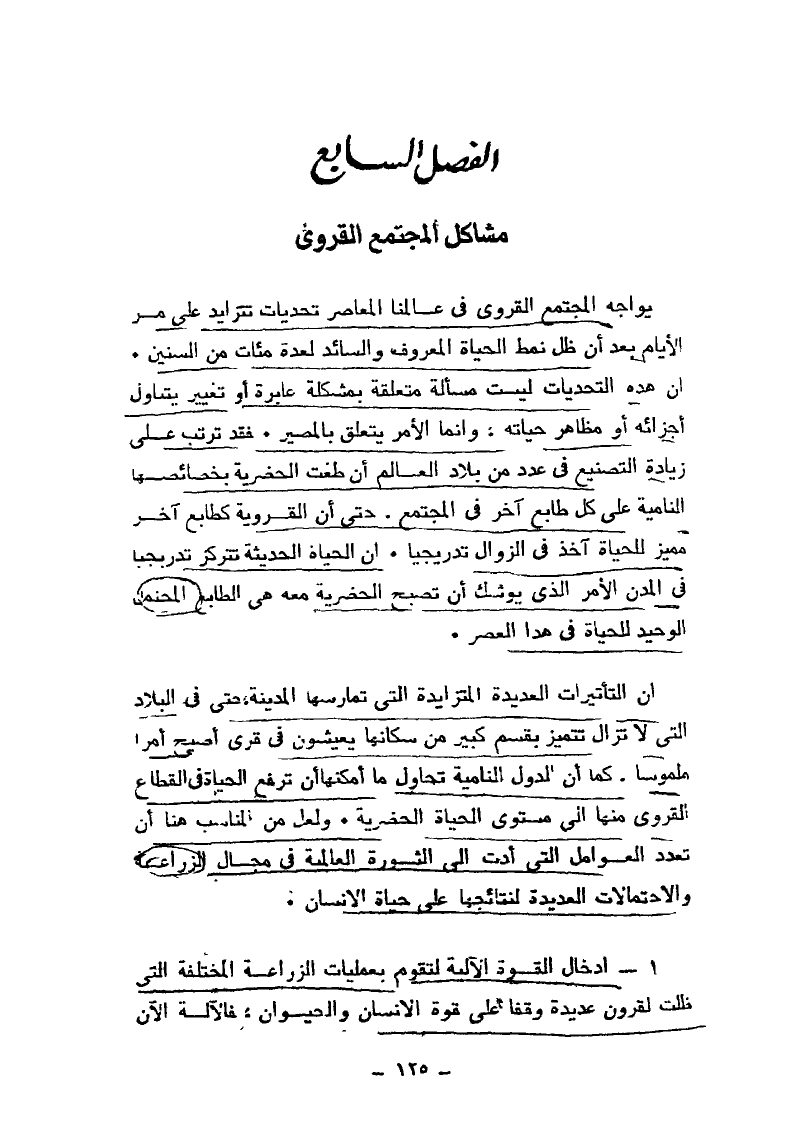 الفصل السابع
مشاكل المجتمع القروى
يواجه المجتمع القروى فى عالمنا المعاصر تحديات تتزايد على مر
الأيام بعد أن ظل نمط الحياة المعروف والسائد لعدة مئات من السنين .
ان هذه التحديات ليست مسألة متعلقة بمشكلة عابرة أو تغيير يتناول
أجزائه أو مظاهر حياته ؛ وانما الأمر يتعلق بالمصير . فقد ترتب على
زيادة التصنيع فى عدد من بلاد العالم أن طغت الحضرية بخصائصها
النامية على كل طابع آخر فى المجتمع . حتى أن القروية كطابع آخر
مميز للحياة آخذ فى الزوال تدريجيا . ان الحياة الحديثة تتركز تدريجيا
فى المدن الأمر الذى يوشك أن تصبح الحضرية معه هى الطابع المحتمل
الوحيد للحياة فى هذا العصر .
ان التأثيرات العديدة المتزايدة التى تمارسها المدينة ، حتى فى البلاد
التى لا تزال تتميز بقسم كبير من سكانها يعيشون فى قرى أصبح أمرا
ملموسا . كما أن الدول النامية تحاول ما أمكنها أن ترفع الحياة فى القطاع
القروى منها الى مستوى الحياة الحضرية . ولعل من المناسب هنا أن
نعدد العوامل التى أدت الى الثورة العالمية فى مجال الزراعة
والاحتمالات العديدة لنتائجها على حياة الانسان .
١ — ادخال القوة الآلية لتقوم بعمليات الزراعة المختلفة التى
ظلت لقرون عديدة وقفا على قوة الانسان والحيوان ؛ فالآلة الآن
— ١٢٥ —